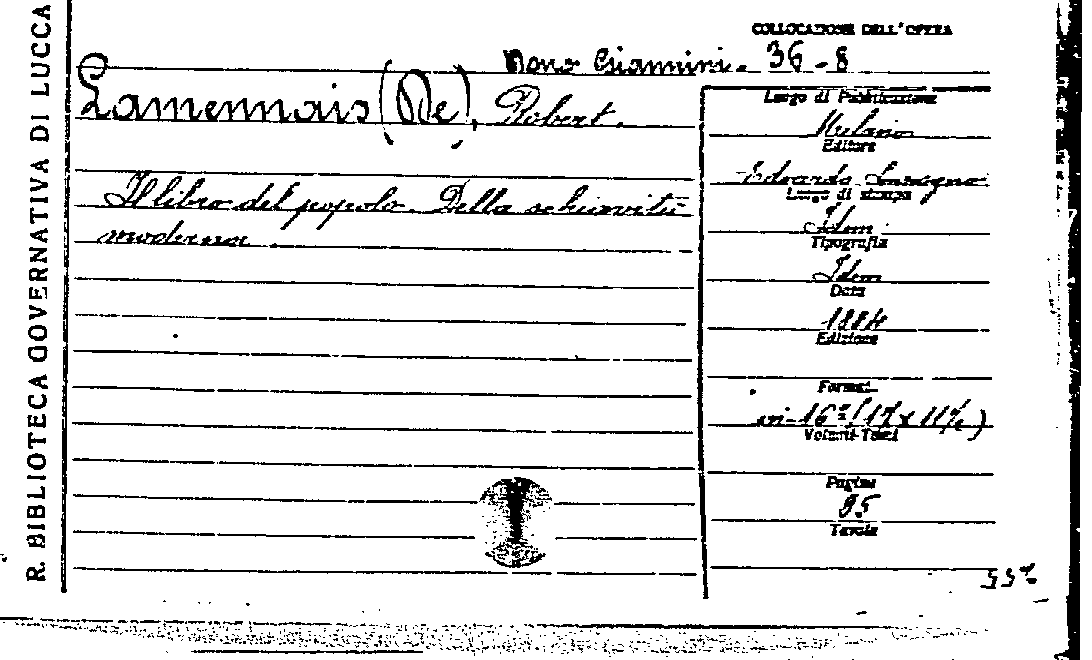 R. BIBLIOTECA GOVERNATIVA DI LUCCA
COLLOCAZIONE DELL'OPERA
Dono Giannini. 36-8
Lamennais (De), Robert.
Il libro del popolo. Della schiavitù
moderna
Luogo di Pubblicazione
Milano
Editore
Edoardo Sonzogno
Luogo di stampa
Idem
Tipografia
Idem
Data
1884
Edizione
Formato
in-16°
Volumi-Tomi
Pagine
95
Tavole